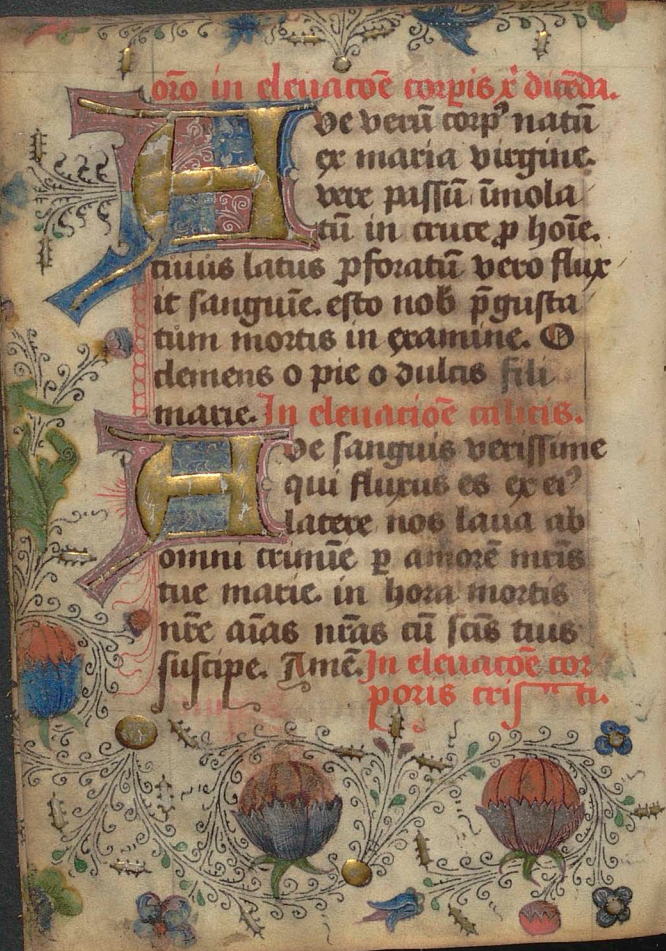 oro̅ in eleuatoe̅ corpis x̅ dice̅da.
Aue veru̅ corpꝰ natu̅
ex maria virgine.
vere passu̅ i̅mola
tu̅ in cruce ꝓ hoi̅e.
cuius latus ꝑforatu̅ vero flux
it sangui̅e. esto nob̅ p̅gusta
tum mortis in examine. O
clemens o pie o dulcis fili
marie. In eleuacioe̅ calicis.
Aue sanguis verissime
qui fluxus es ex eiꝰ
latere nos laua ab
omni crimi̅e ꝑ amore̅ mr̅is
tue marie. in hora mortis
nr̅e ai̅as nr̅as cu̅ sc̅is tuis
suscipe. Ame̅. In eleuacoe̅ cor
poris cristi.